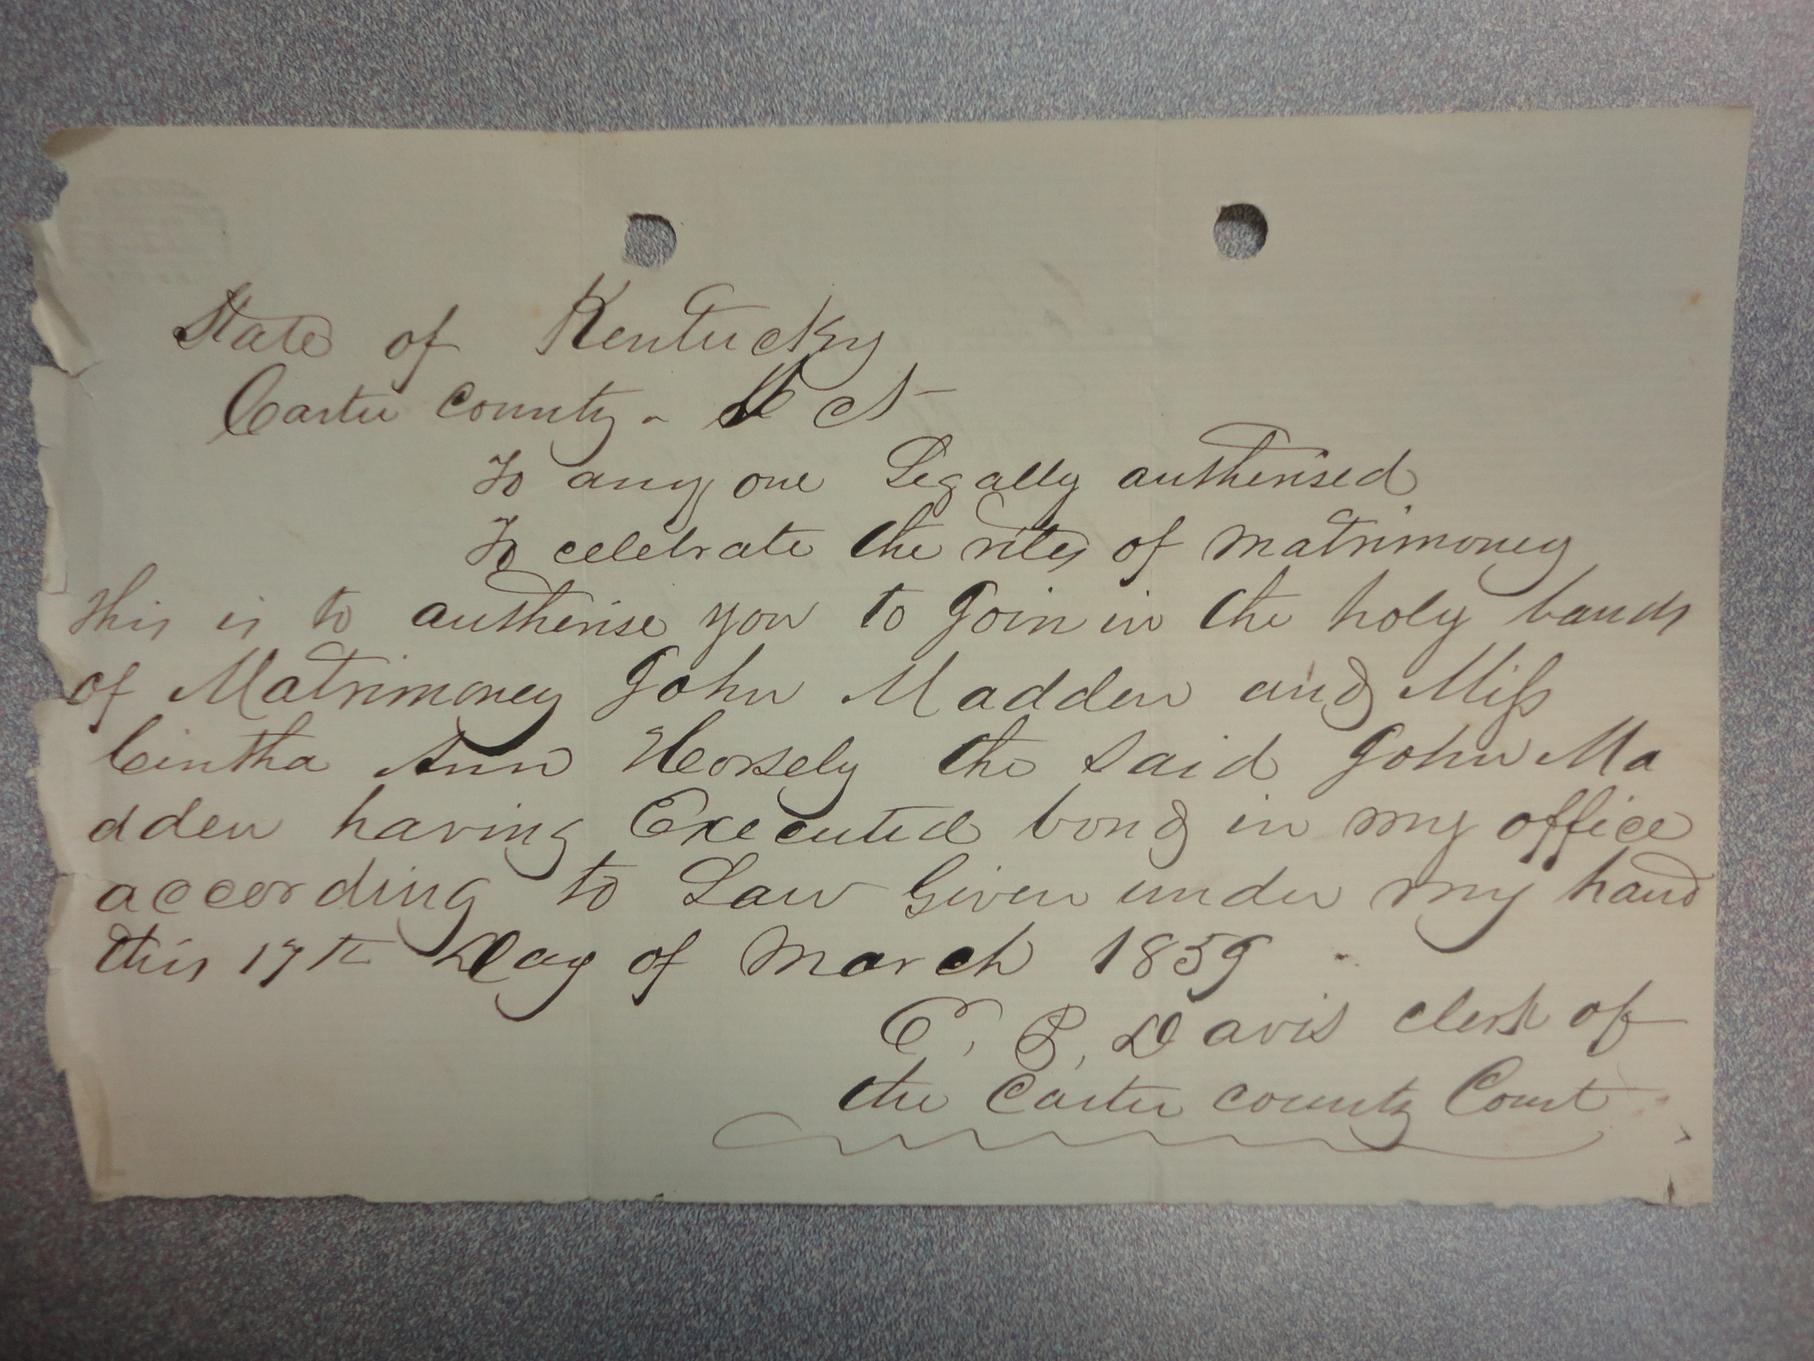 State of Kentucky
Carter County - Sct
To any one Legally autherised
To celebrate the rites of Matrimoney
this is to autherise you to Join in the holy bands
of Matrimoney John Madden and Miss
Cintha Ann Horsely the said John Ma
dden having Executed bond in my office
according to Law Given under my hand
this 17th Day of March 1859
E, B, Davis clerk of
the Carter county Court